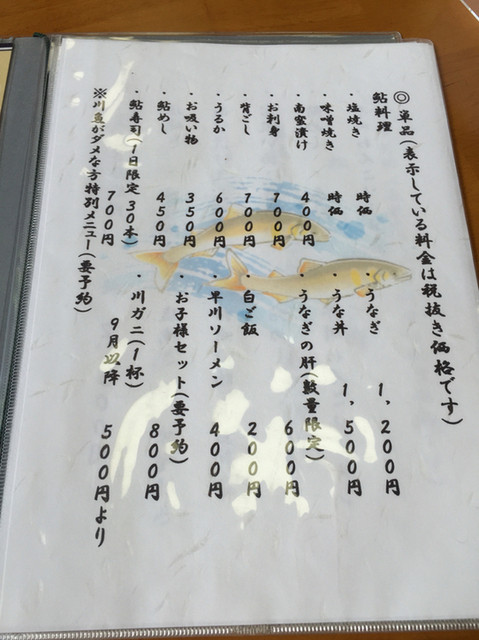 ◎単品(表示している料金は税抜き価格です)
鮎料理
・塩焼き 時価
・味噌焼き 時価
・南蛮漬け 400円
・お刺身 700円
・背ごし 700円
・うるか 600円
・お吸い物 350円
・鮎めし 450円
・鮎寿司(1日限定30本) 700円
※川魚がダメな方特別メニュー(要予約)
・うなぎ 1,200円
・うな丼 1,500円
・うなぎの肝(数量限定) 600円
・白ご飯 200円
・早川ソーメン 400円
・お子様セット(要予約) 800円
・川ガニ(1杯) 500円より
9月以降